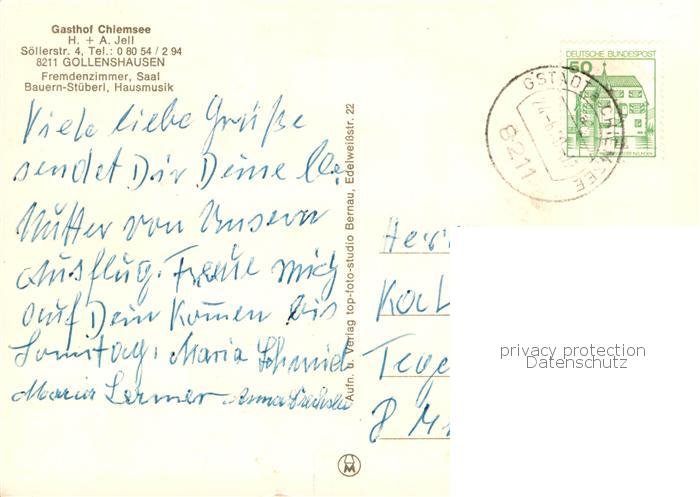 Gasthof Chiemsee
H. + A. Jell
Söllerstr. 4, Tel.: 0 80 54 / 2 94
8211 GOLLENSHAUSEN
Fremdenzimmer, Saal
Bauern-Stüberl, Hausmusik
Viele liebe Grüße
sendet Dir Deine lb.
Mutter von Unsern
Ausflug. Freue mich
auf Dein Komen bis
Sonntag. Maria Schmid
Maria Lermer Anna
Aufn. u. Verlag top-foto-studio Bernau, Edelweißstr. 22
DEUTSCHE BUNDESPOST
50
GSTADT A CHIEMSEE
8211
Herr
Kar
Tege
8 M
privacy protection
Datenschutz